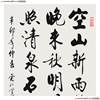 空山新雨
晚来秋明
照清泉石